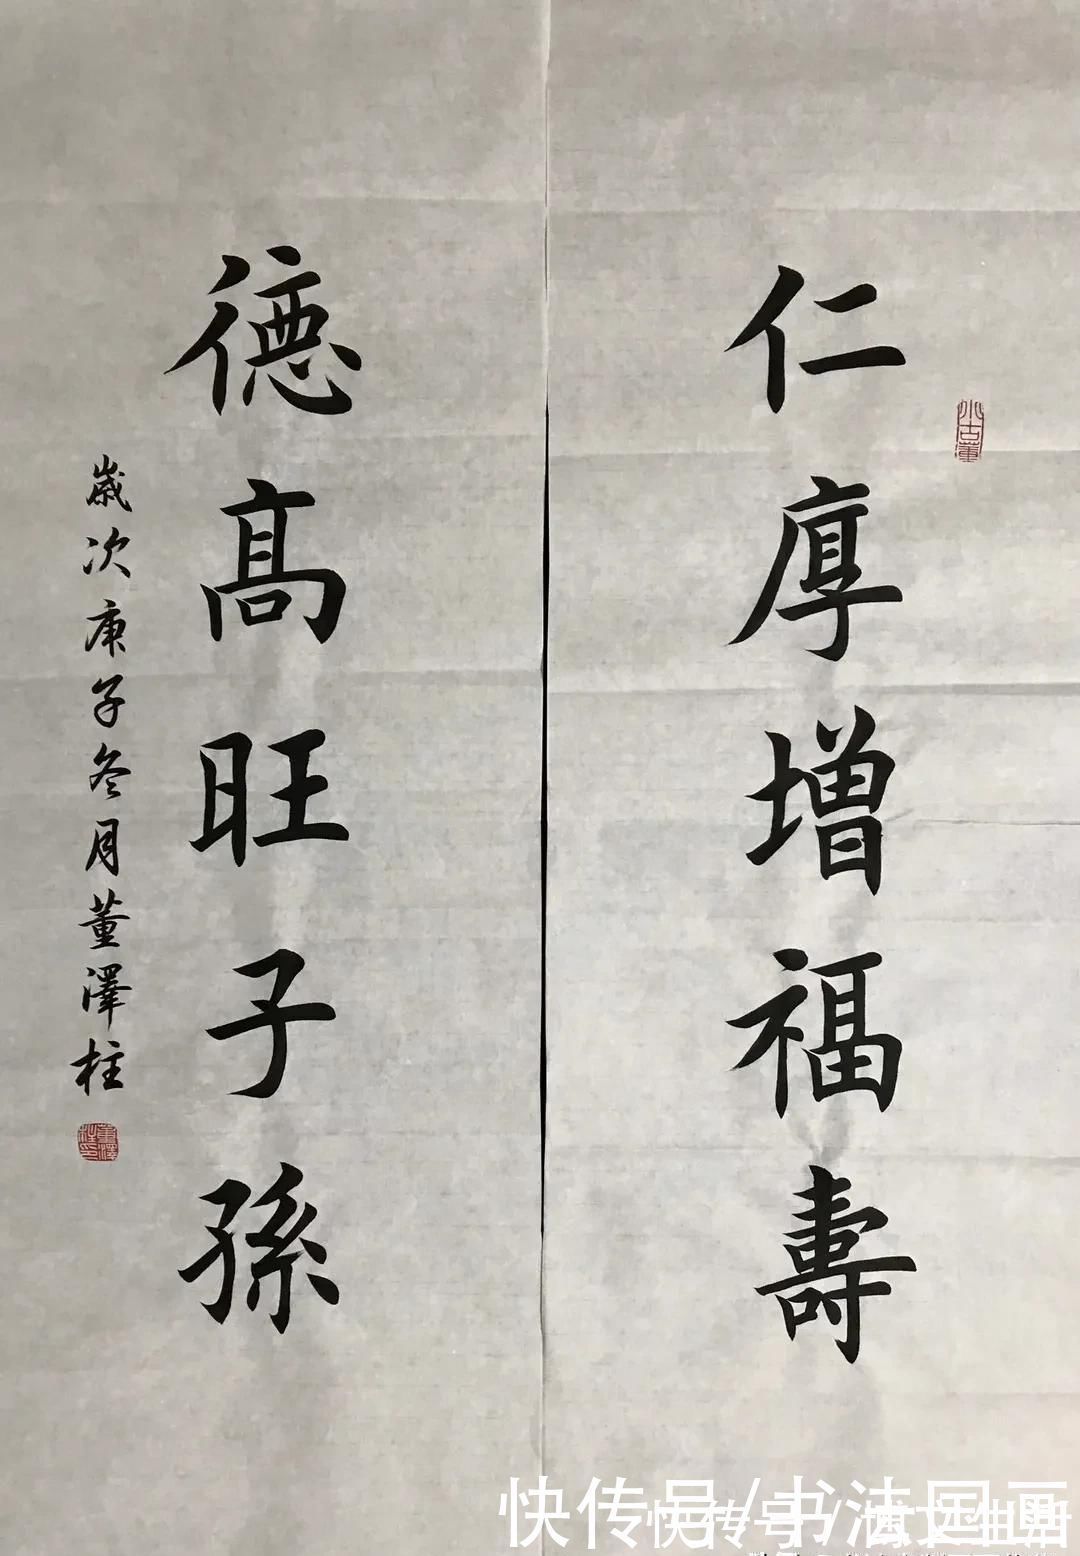 仁厚增福壽
德高旺子孫
歲次庚子冬月董澤柱
快传号/书法国画